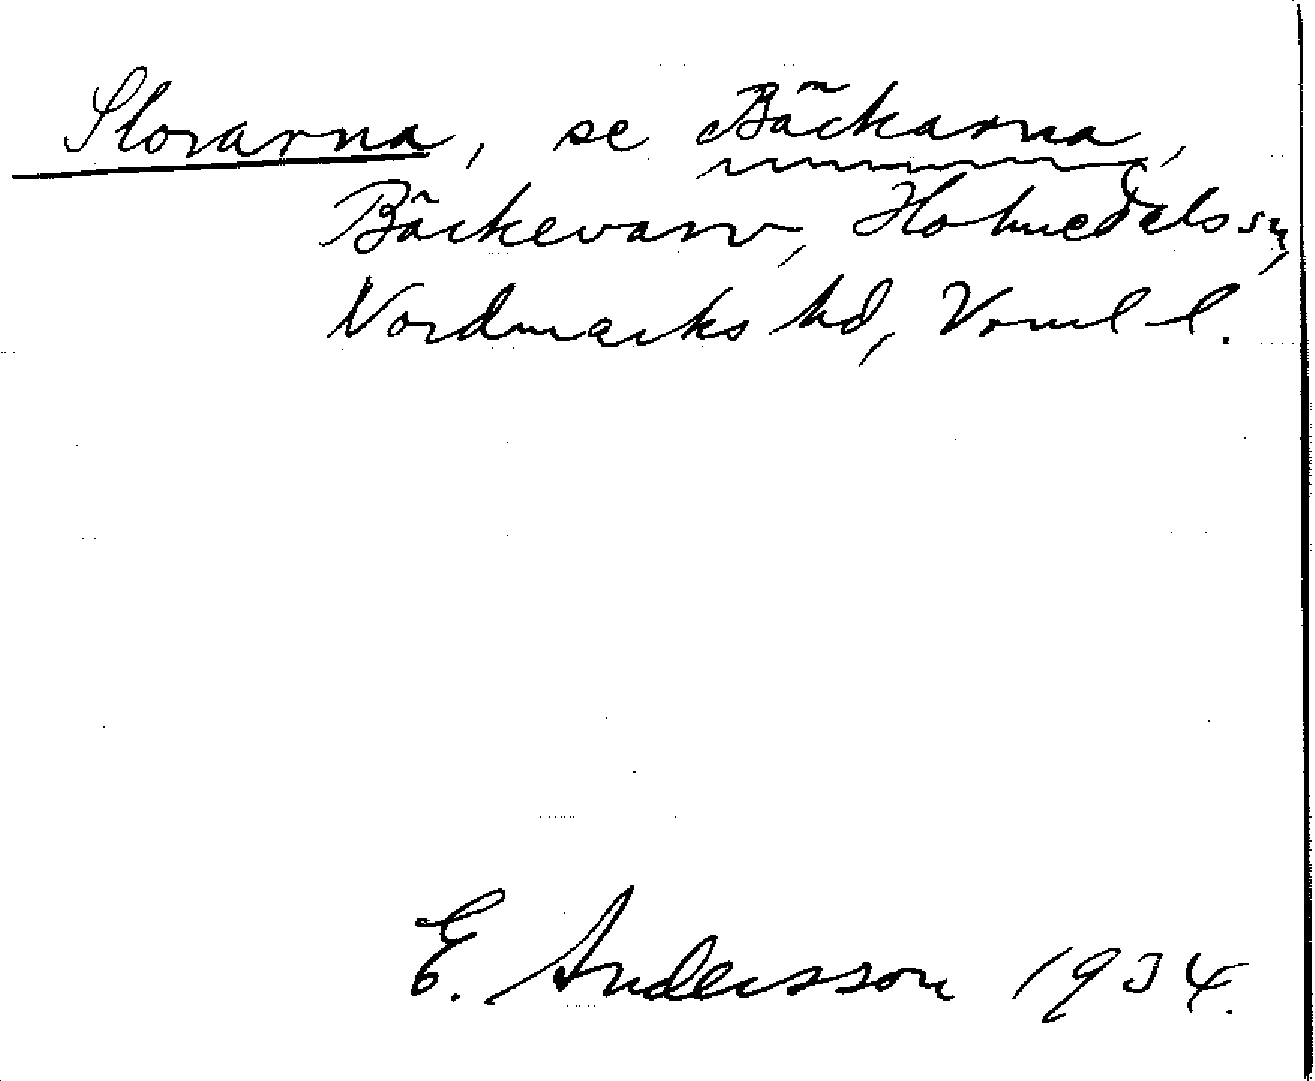 Slorarna, se Bäckarna,
Bäckevarv, Holmedals sn,
Nordmarks hd, Vrml l.
E. Andersson 1934.